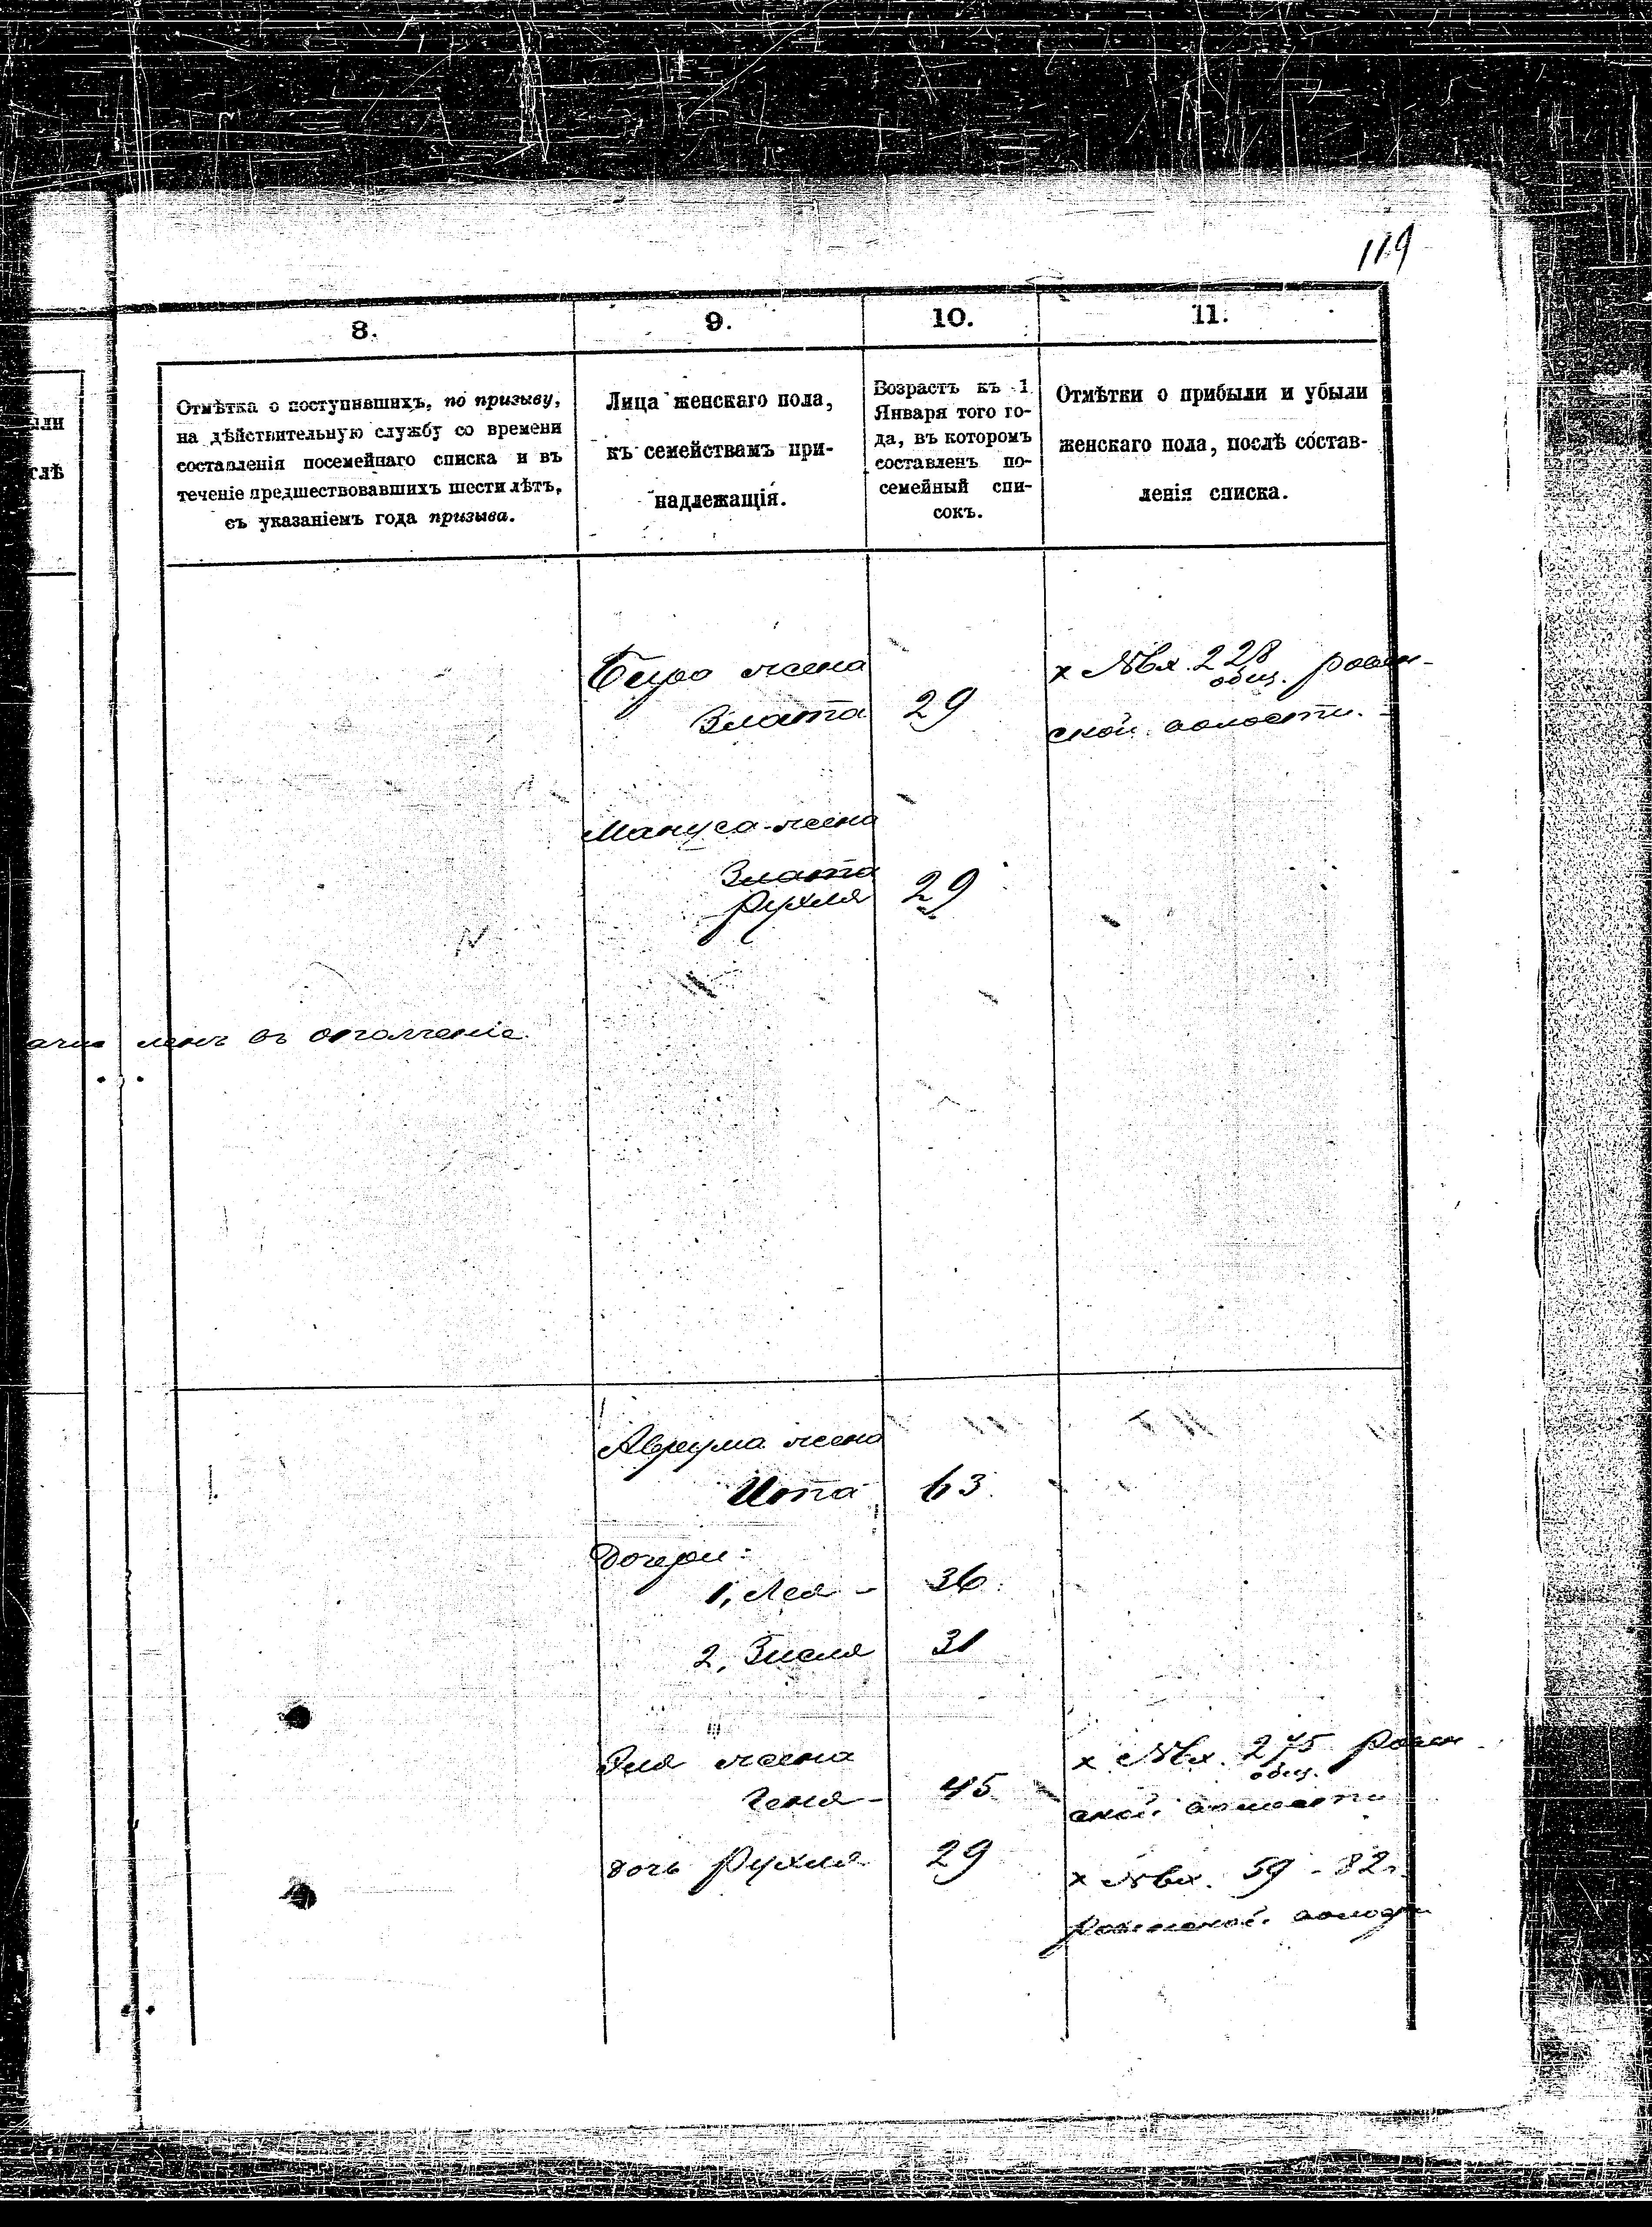 119
8.
9.
10.
11.
Отмѣтка о поступившихъ, по призыву,
на дѣйствительную службу со времени
составленія посемейнаго списка и въ
теченіе предшествовавшихъ шести лѣтъ,
съ указаніемъ года призыва.
Лица женскаго пола,
къ семействамъ при-
надлежащія.
Возрастъ къ 1
Января того го-
да, въ которомъ
составленъ по-
семейный спи-
сокъ.
Отмѣтки о прибыли и убыли
женскаго пола, послѣ состав-
ленія списка.
или
слѣ
жена
х №вх. 228 ровен-
общ.
Злата 29
ской волости.
Мануса жена
Злата
Рухля 29
ленъ въ ополченіе.
Авреума жена
Ита 63.
Дочери:
1, Лея - 36.
2, Зисля 31
Эля жена
х №вх. 275 ровен-
общ.
Геня - 45
ской волости
дочь Рухля 29
х №вх. 59 - 82г.
ровенской волости